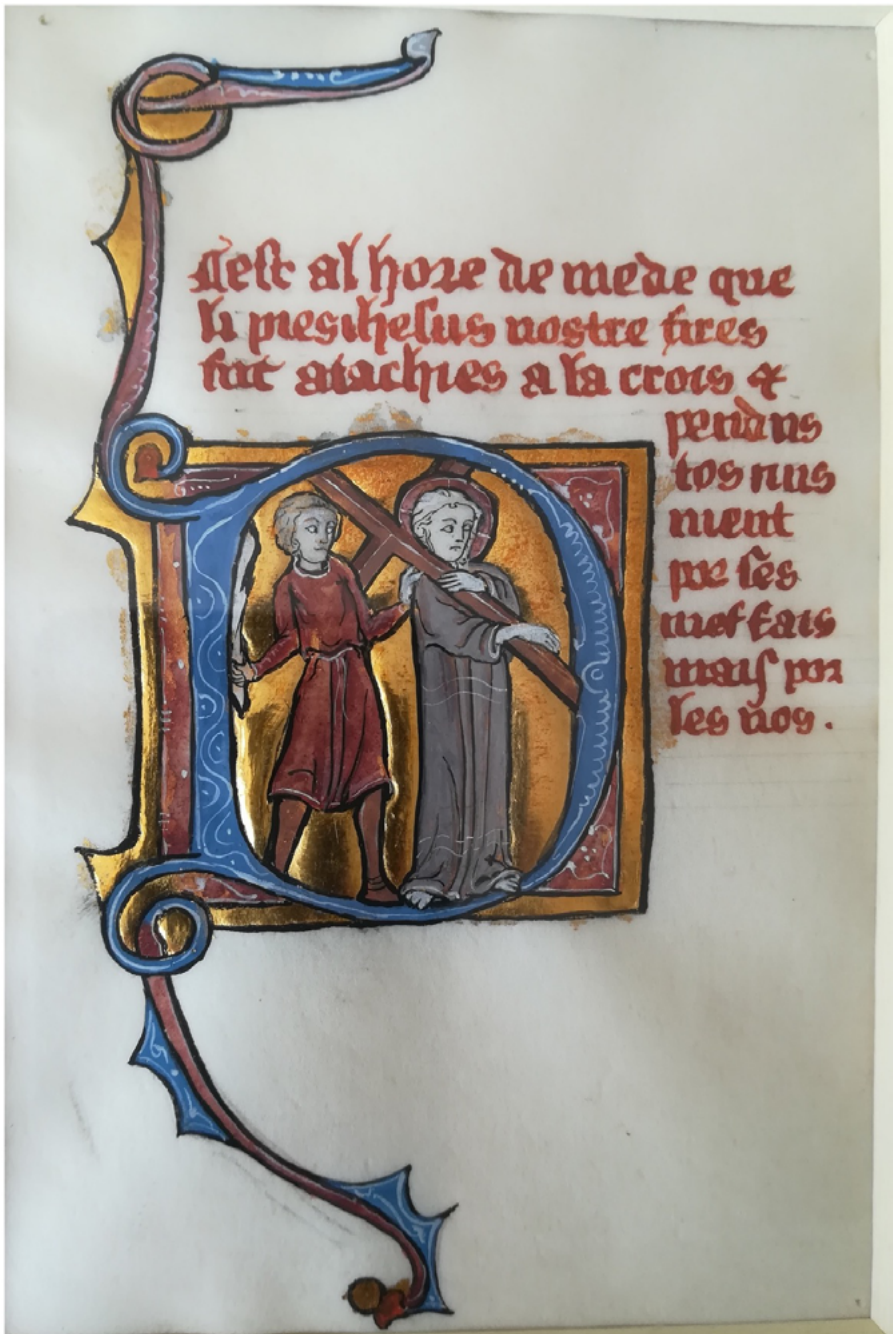 Cest al hore de mede que
li pies ihesus nostre sires
fut atachies a la crois &
pendus
tos nus
nient
por ses
meffais
mais por
les nos.